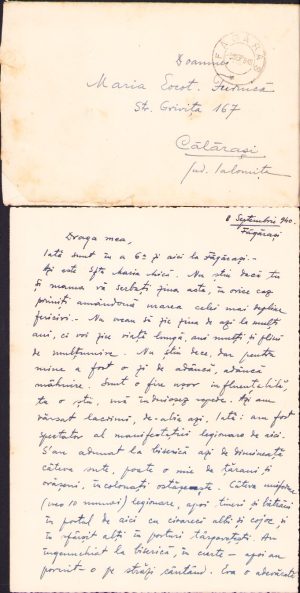 FĂGĂRAȘ
Doamnei
Maria Eocot. Furnică
Str. Grivița 167
Călărași
jud. Ialomița
8 Septembrie 940.
Făgărași
Draga mea,
Iată sunt în a 6a zi aici la Făgărași.-
Azi este Sfta Maria Mică. Nu știu dacă tu
și mama vă serbați ziua asta, în orice caz
primiți amândouă urarea celei mai depline
fericiri. Nu vreau să zic ziua de azi la mulți
ani, ci voi zice viață lungă, ani mulți și plini
de mulțumire. Nu știu dece, dar pentru
mine a fost o zi de adâncă, adâncă
mâhnire. Sunt o fire ușor influențabilă,
tu o știi, mă înduioșez repede. Azi am
vărsat lacrimi, de-alea azi. Iată: am fost
spectator al manifestației legionare de aici.
S'au adunat la biserică azi de dimineață
câteva sute, poate o mie de țărani și
orășeni, încolonați ostășește. Câteva uniforme
(vreo 10 numai) legionare, apoi tineri și bătrâni
în portul de aici cu cioareci albi și cojoc, și
în sfârșit alți în porturi târgovețești. Au
îngenunchiat la biserică, în curte - apoi au
pornit-o pe străzi cântând. Era o adevărată